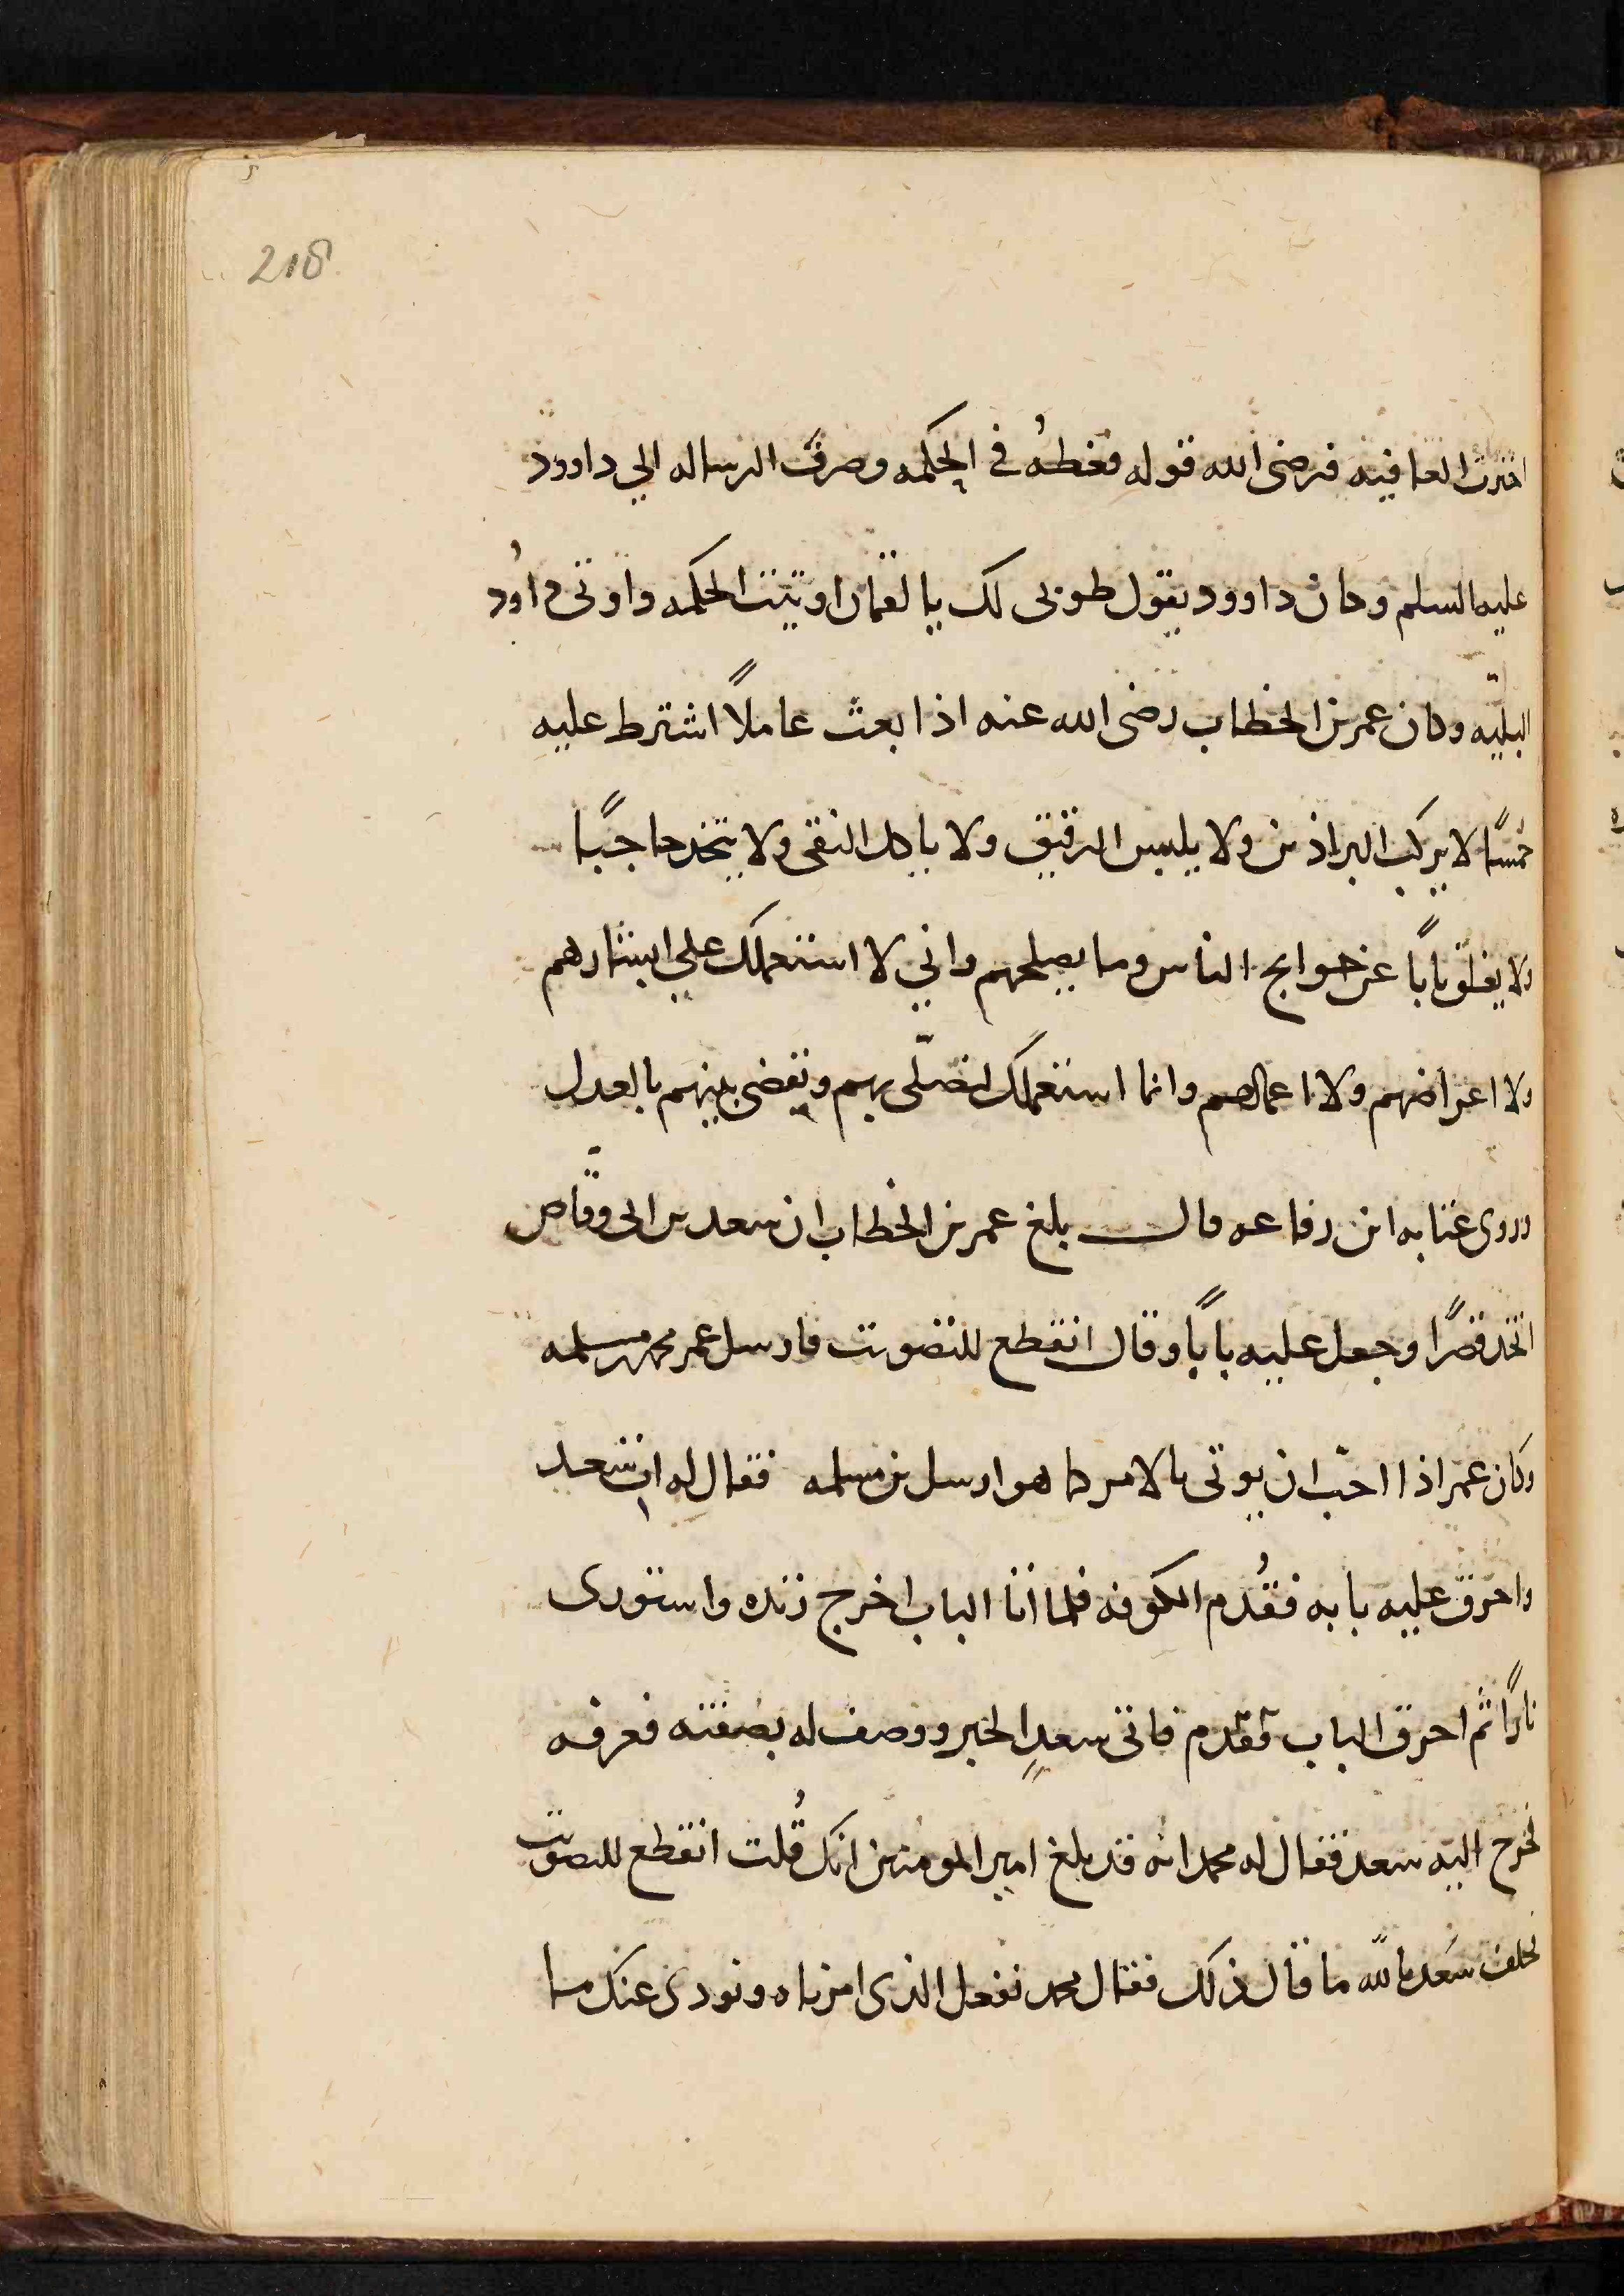 218
اخترت العافيه فرضى الله قوله فغطه فى الحكمه وصرف الرساله الي داوود
عليه السلم وكان داوود يقول طوبى لك يا لقمان اوتيت الحكمه واوتى داود
البليّه وكان عمر بن الخطاب رضى الله عنه اذا بعث عاملاً اشترط عليه
خمسًا لا يركب البراذين ولا يلبس الرقيق ولا ياكل النقى ولا يتخذ حاجبًا
ولا يغلق بابًا عن حوايج الناس وما يصلحهم واني لا استعملك علي ابشارهم
ولا اعراضهم ولا اعمالهم وانما استعملك لتصلّى بهم وتقضى بينهم بالعدل
وروى عبابه ابن رفاعه قال بلغ عمر بن الخطاب ان سعد بن ابى وقّاص
اتخذ قصرًا وجعل عليه بابًا وقال انقطع للتصويت فارسل عمر محمد بن مسلمه
وكان عمر اذا احبّ ان يوتى بالامر كما هو ارسل بن مسلمه فقال له ايت سعد
واحرق عليه بابه فقُدم الكوفه فلما اتا الباب اخرج زنده واستورى
نارًا ثم احرق الباب فقدم فاتى سعدٍ الخبر ووصف له بصفته فعرفه
فخرج اليه سعد فقال له محمد انه قد بلغ امير المومنين انك قُلت انقطع للتصويت
فحلف سَعد بالله ما قال ذلك فقال محمد نفعل الذى امرناه ونودى عنك ما